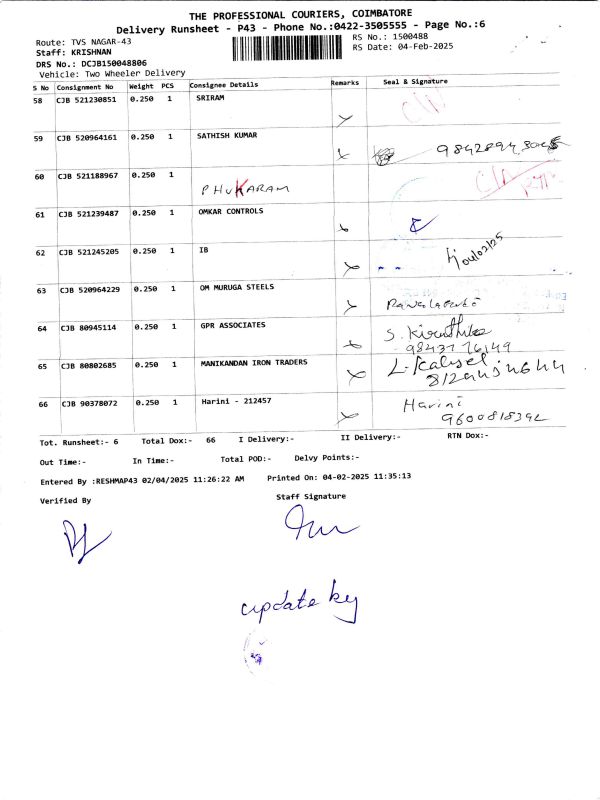 THE PROFESSIONAL COURIERS, COIMBATORE
Delivery Runsheet - P43 - Phone No.:0422-3505555 - Page No.:6
Route: TVS NAGAR-43
RS No.: 1500488
Staff: KRISHNAN
RS Date: 04-Feb-2025
DRS No.: DCJB150048806
Vehicle: Two Wheeler Delivery
S No Consignment No Weight PCS Consignee Details Remarks Seal & Signature
58 CJB 521230851 0.250 1 SRIRAM
59 CJB 520964161 0.250 1 SATHISH KUMAR
60 CJB 521188967 0.250 1 PHUKARAM
61 CJB 521239487 0.250 1 OMKAR CONTROLS
62 CJB 521245205 0.250 1 IB 04/02/25
63 CJB 520964229 0.250 1 OM MURUGA STEELS
64 CJB 80945114 0.250 1 GPR ASSOCIATES S. Kiruthika
9843776149
65 CJB 80802685 0.250 1 MANIKANDAN IRON TRADERS
66 CJB 90378072 0.250 1 Harini - 212457 Harini
9600818392
Tot. Runsheet:- 6 Total Dox:- 66 I Delivery:- II Delivery:- RTN Dox:-
Out Time:- In Time:- Total POD:- Delvy Points:-
Entered By :RESHMAP43 02/04/2025 11:26:22 AM Printed On: 04-02-2025 11:35:13
Verified By Staff Signature
update by